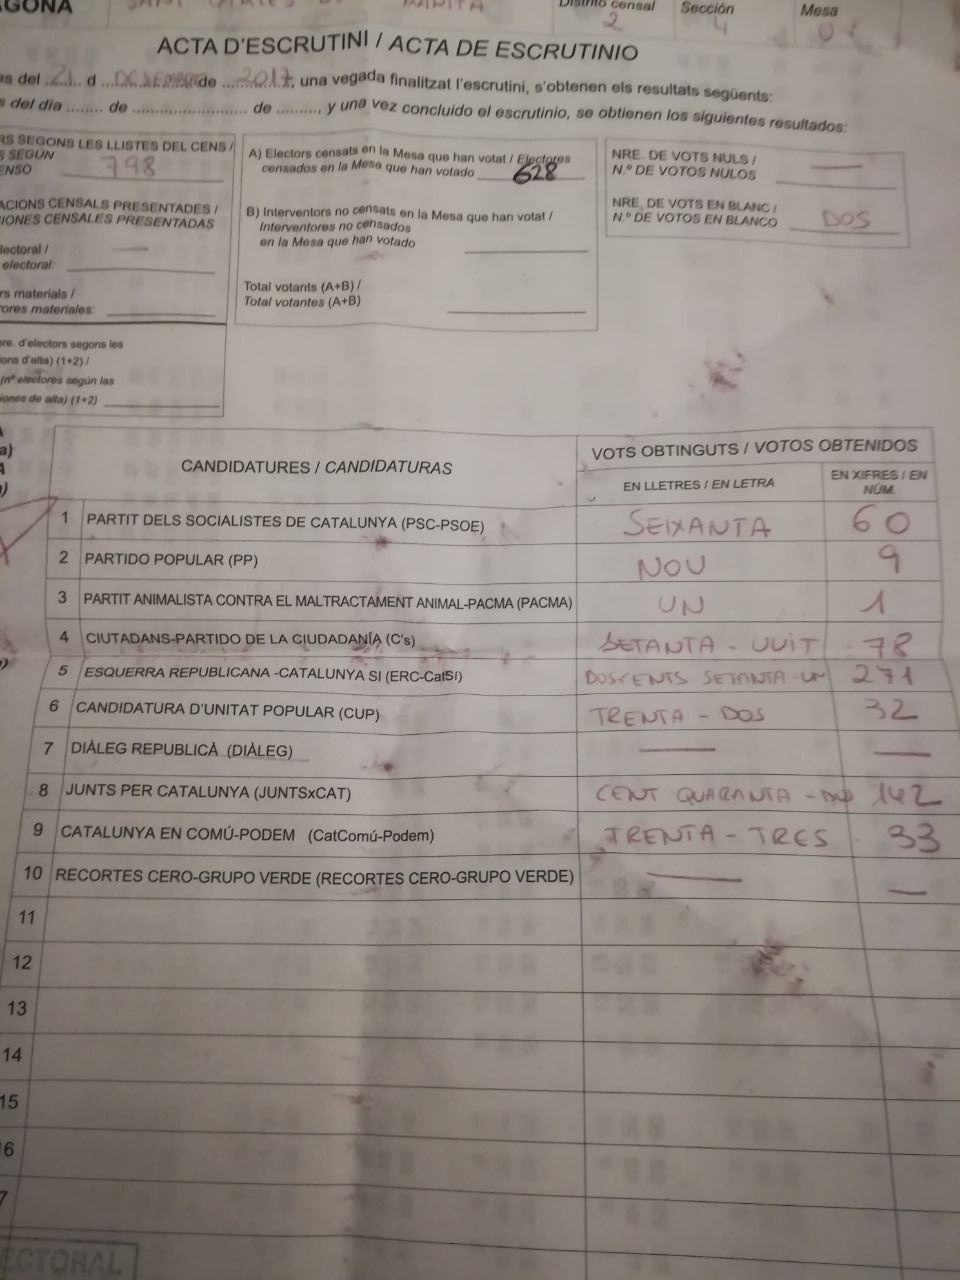 GONA SANT CARLES DE RÀPITA Distrito censal Sección Mesa
2 4 U
ACTA D'ESCRUTINI / ACTA DE ESCRUTINIO
es del ..21.. d ...DESEMBRE de ....2017, una vegada finalitzat l'escrutini, s'obtenen els resultats següents:
s del día ........ de ......................... de ........., y una vez concluido el escrutinio, se obtienen los siguientes resultados:
RS SEGONS LES LLISTES DEL CENS /
S SEGÚN
ENSO 798
ACIONS CENSALS PRESENTADES /
IONES CENSALES PRESENTADAS
lectoral / —
electoral:
rs materials /
ores materiales:
nre. d'electors segons les
ions d'alta) (1+2) /
(nº electores según las
iones de alta) (1+2)
A) Electors censats en la Mesa que han votat / Electores
censados en la Mesa que han votado 628
B) Interventors no censats en la Mesa que han votat /
Interventores no censados
en la Mesa que han votado
Total votants (A+B) /
Total votantes (A+B)
NRE. DE VOTS NULS / —
N.º DE VOTOS NULOS
NRE. DE VOTS EN BLANC /
N.º DE VOTOS EN BLANCO DOS
a)
A
)
CANDIDATURES / CANDIDATURAS
VOTS OBTINGUTS / VOTOS OBTENIDOS
EN LLETRES / EN LETRA
EN XIFRES / EN
NÚM.
1 PARTIT DELS SOCIALISTES DE CATALUNYA (PSC-PSOE) SEIXANTA 60
2 PARTIDO POPULAR (PP) NOU 9
3 PARTIT ANIMALISTA CONTRA EL MALTRACTAMENT ANIMAL-PACMA (PACMA) UN 1
4 CIUTADANS-PARTIDO DE LA CIUDADANÍA (C's) SETANTA - VUIT 78
5 ESQUERRA REPUBLICANA -CATALUNYA SI (ERC-CatSí) DOSCENTS SETANTA-UN 271
6 CANDIDATURA D'UNITAT POPULAR (CUP) TRENTA - DOS 32
7 DIÀLEG REPUBLICÀ (DIÀLEG) — —
8 JUNTS PER CATALUNYA (JUNTSxCAT) CENT QUARANTA - DOS 142
9 CATALUNYA EN COMÚ-PODEM (CatComú-Podem) TRENTA - TRES 33
10 RECORTES CERO-GRUPO VERDE (RECORTES CERO-GRUPO VERDE) — —
11
12
13
14
15
6
7
ECTORAL